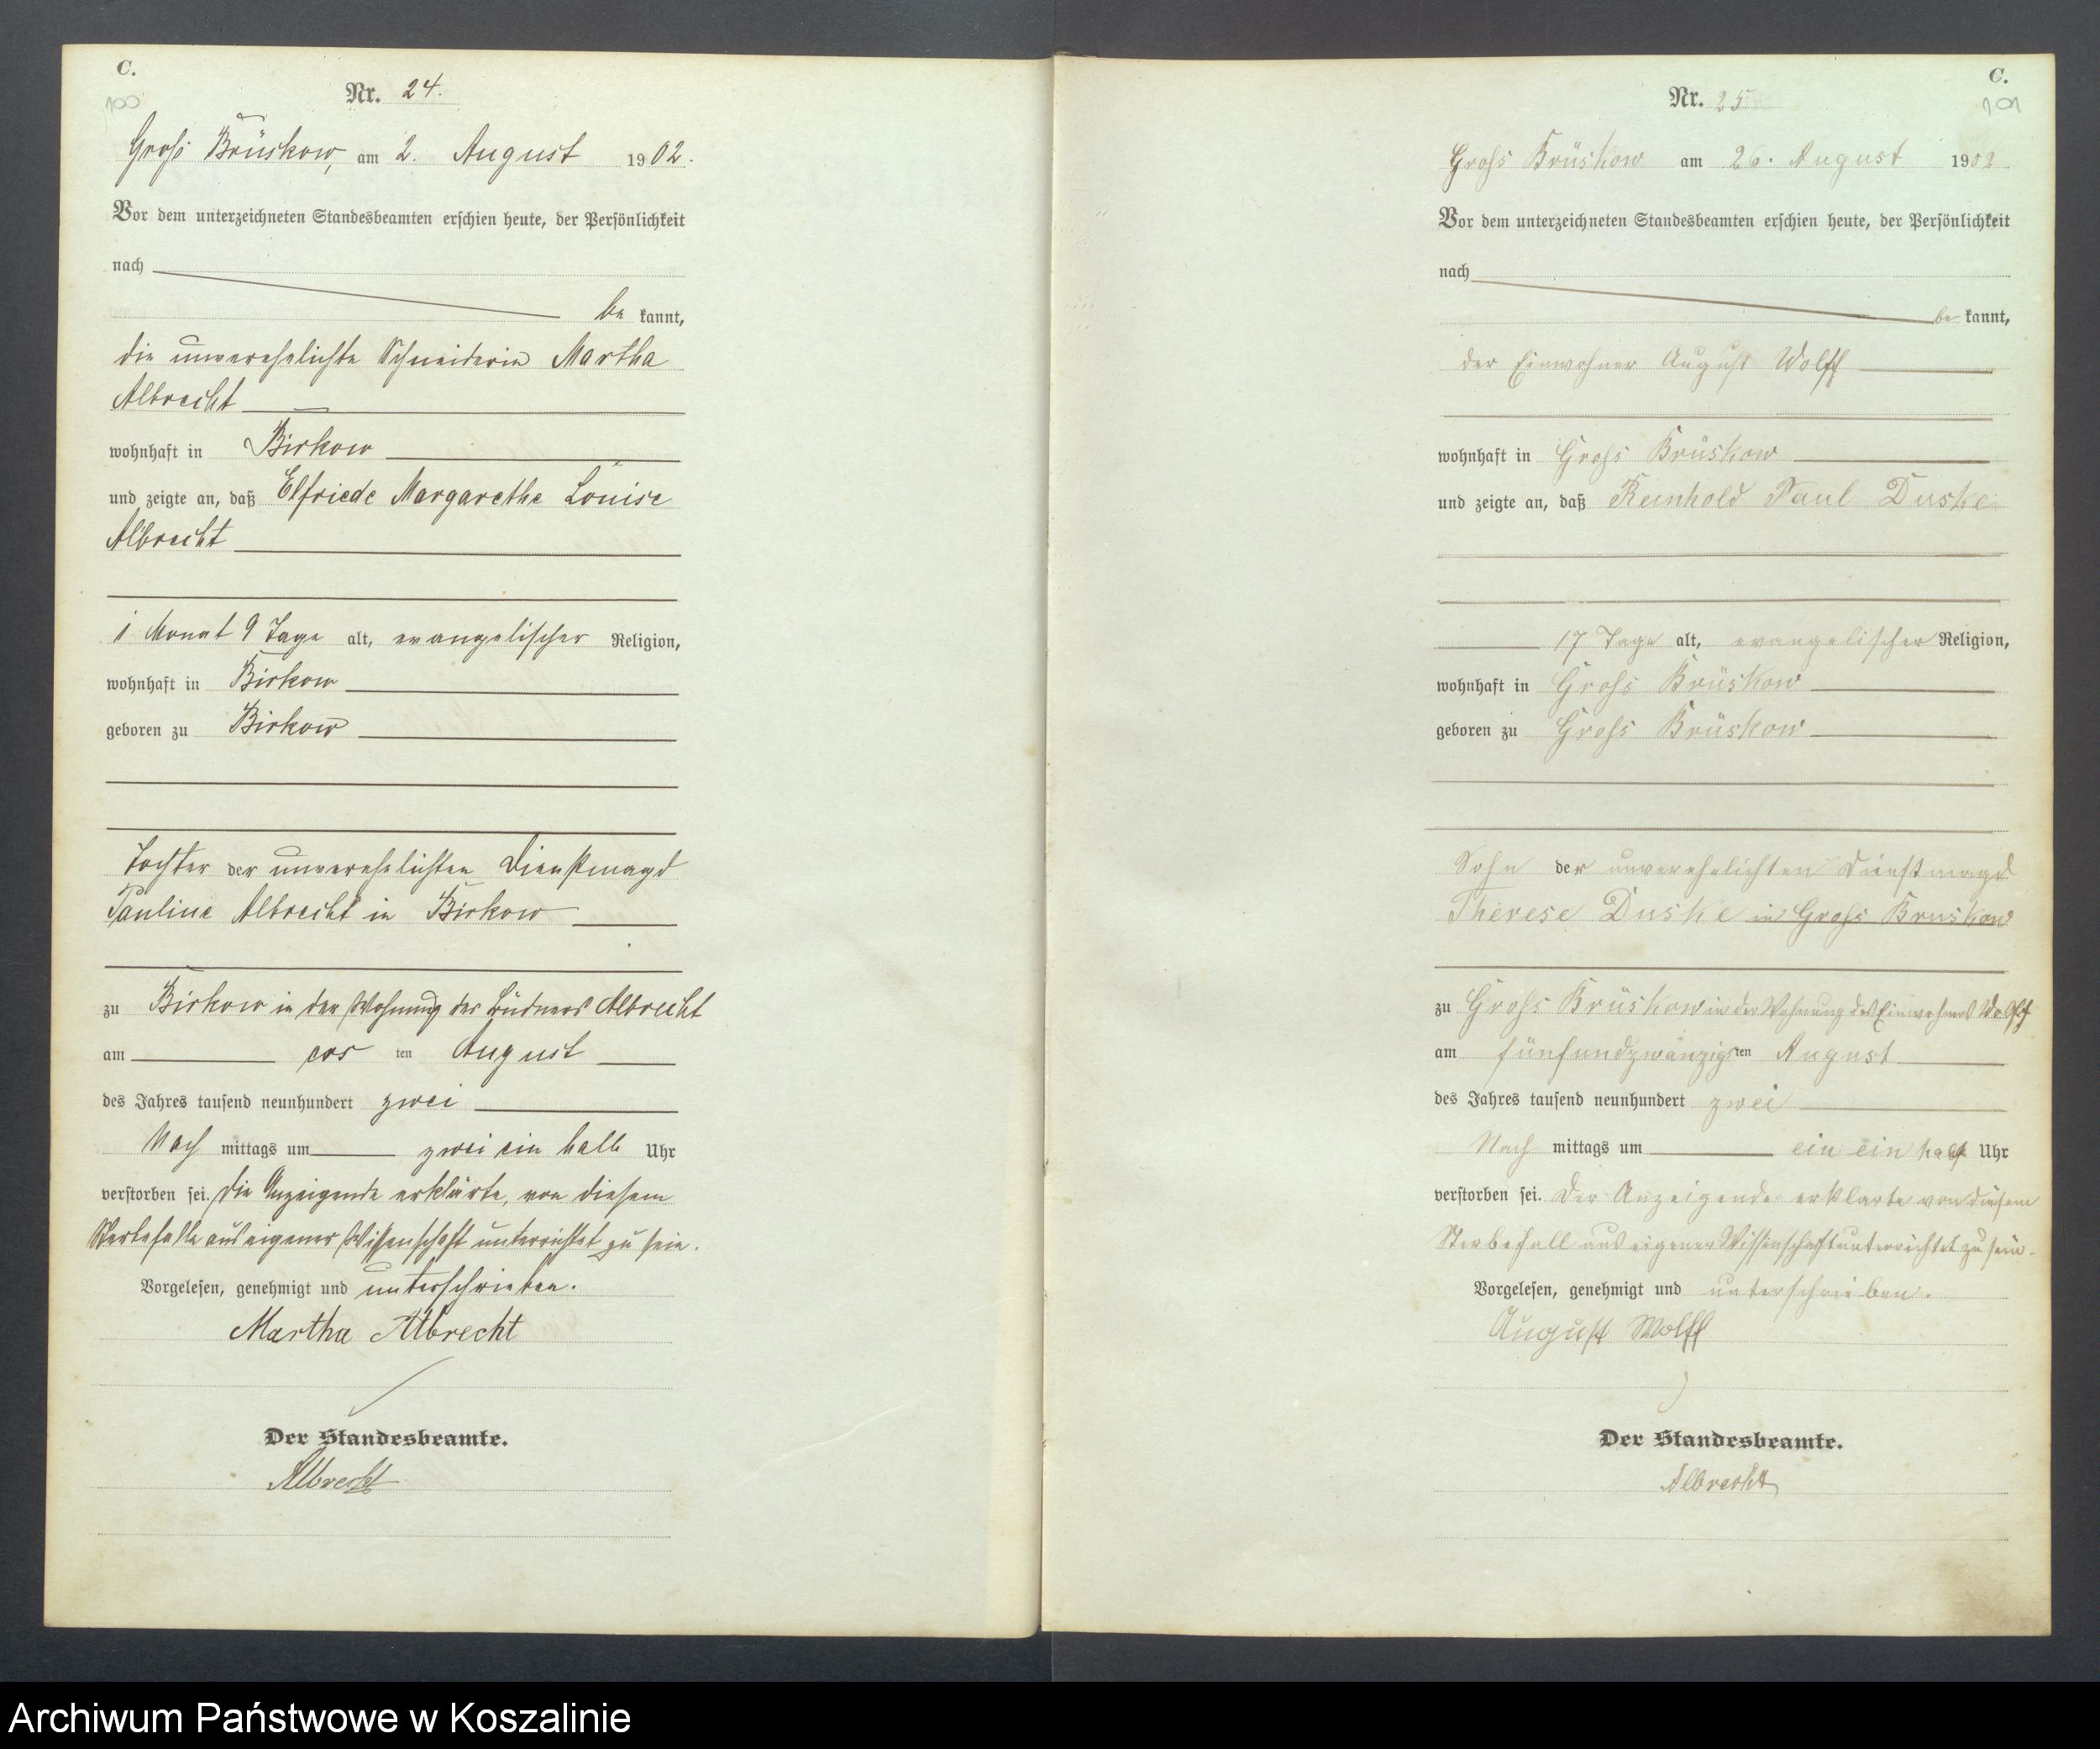 C.
100
Nr. 24.
Groß Brüskow, am 2. August 1902.
Vor dem unterzeichneten Standesbeamten erschien heute, der Persönlichkeit
nach
be kannt,
die unverehelichte Schneiderin Martha
Albrecht
wohnhaft in Birkow
und zeigte an, daß Elfriede Margarethe Louise
Albrecht
1 Monat 9 Tage alt, evangelischer Religion,
wohnhaft in Birkow
geboren zu Birkow
Tochter der unverehelichten Dienstmagd
Pauline Albrecht in Birkow
zu Birkow in der Wohnung des Büdners Albrecht
am ersten August
des Jahres tausend neunhundert zwei
Nach mittags um zwei ein halb Uhr
verstorben sei. Die Anzeigende erklärte, von diesem
Sterbefalle aus eigener Wissenschaft unterrichtet zu sein.
Vorgelesen, genehmigt und unterschrieben.
Martha Albrecht
Der Standesbeamte.
Albrecht
C.
101
Nr. 25
Groß Brüskow am 26. August 1902
Vor dem unterzeichneten Standesbeamten erschien heute, der Persönlichkeit
nach
be kannt,
der Einwohner August Wolff
wohnhaft in Groß Brüskow
und zeigte an, daß Reinhold Paul Duske
17 Tage alt, evangelischer Religion,
wohnhaft in Groß Brüskow
geboren zu Groß Brüskow
Sohn der unverehelichten Dienstmagd
Therese Duske in Groß Brüskow
zu Groß Brüskow in der Wohnung des Einwohners Wolff
am fünfundzwanzigsten August
des Jahres tausend neunhundert zwei
Nach mittags um ein ein halb Uhr
verstorben sei. Der Anzeigende erklärte von diesem
Sterbefall aus eigener Wissenschaft unterrichtet zu sein.
Vorgelesen, genehmigt und unterschrieben.
August Wolff
Der Standesbeamte.
Albrecht
Archiwum Państwowe w Koszalinie